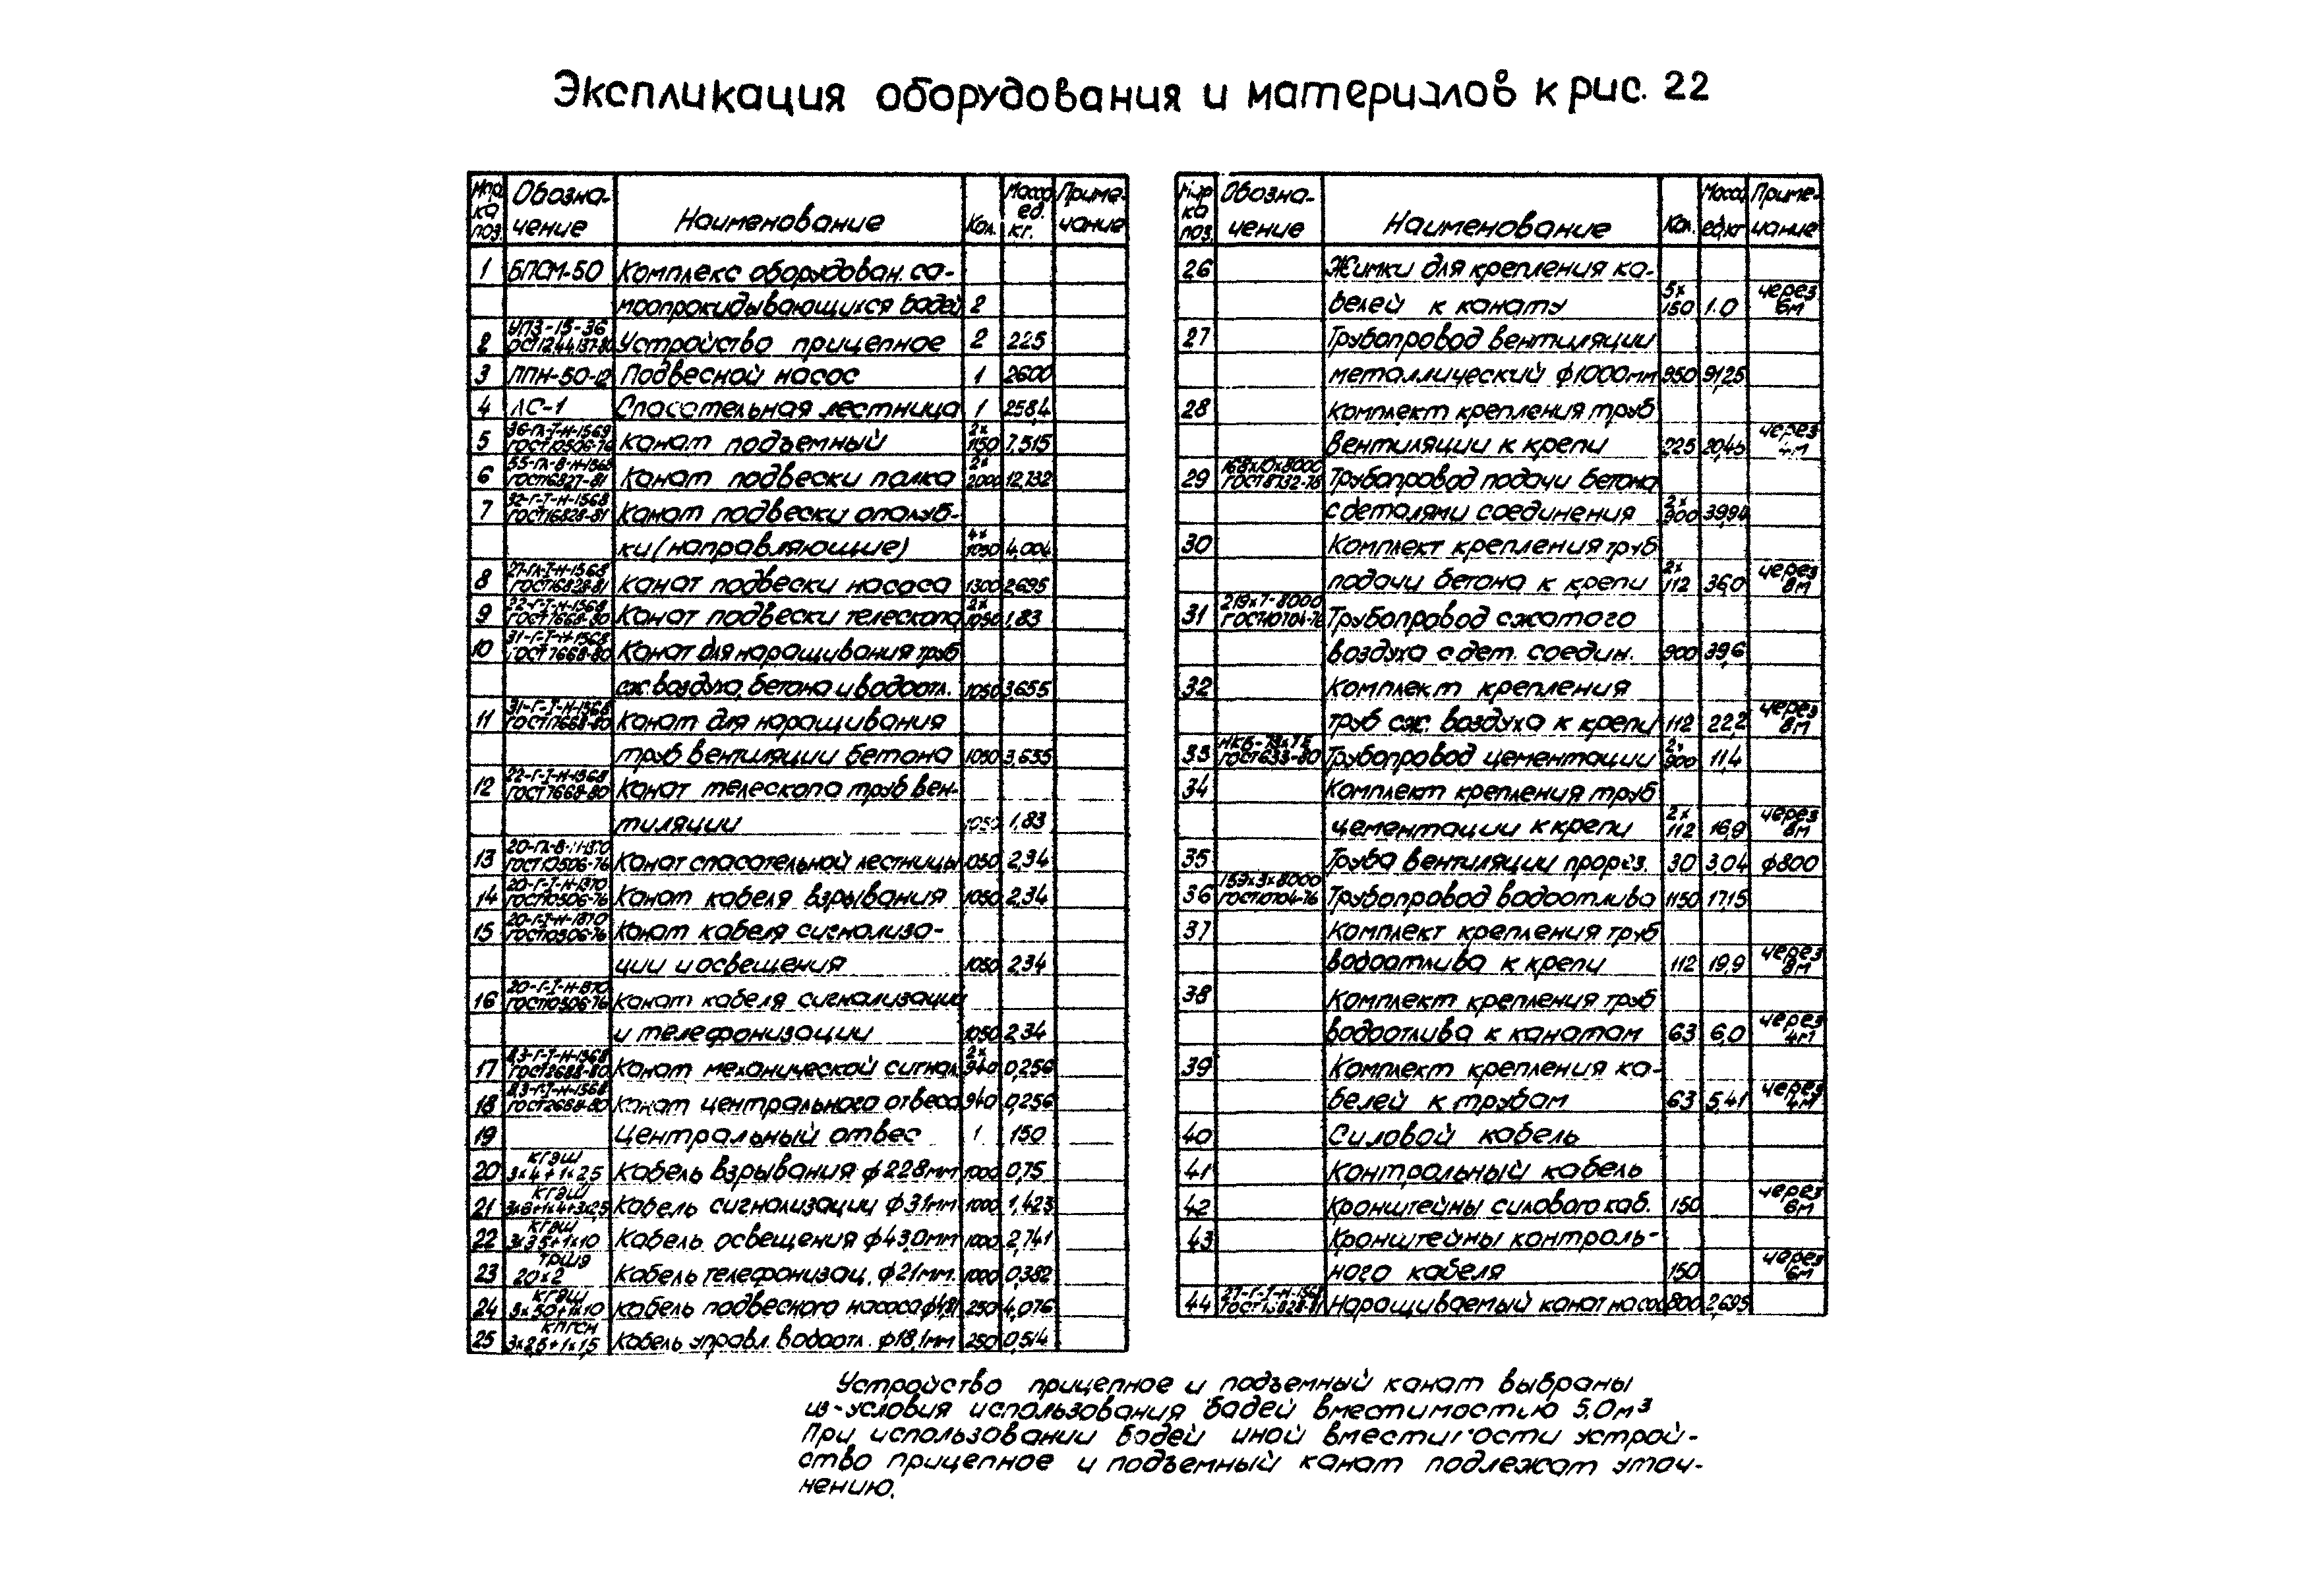 Экспликация оборудования и материалов к рис. 22
Марка поз. Обозначение Наименование Кол. Масса ед. кг. Примечание
1 БПСМ-50 Комплекс оборудован. са-
моопрокидывающихся бадей 2
2 УПЗ-15-36 Устройство прицепное 2 225
3 ППН-50-12 Подвесной насос 1 2600
4 ЛС-1 Спасательная лестница 1 2584
5 36-ГЛ-Т-Н-1569 ГОСТ10506-76 Канат подъемный 2х 1150 7,515
6 55-ГЛ-В-Н-1568 ГОСТ16827-81 Канат подвески полка 2х 2000 12,732
7 32-Г-Т-Н-1568 ГОСТ16828-81 Канат подвески опалуб-
ки (направляющие) 4х 1050 4,004
8 27-ГЛ-Т-Н-1568 ГОСТ16828-81 Канат подвески насоса 1300 2,695
9 22-Г-Т-Н-1568 ГОСТ7668-80 Канат подвески телескопа 2х 1050 1,83
10 31-Г-Т-Н-1568 ГОСТ7668-80 Канат для наращивания труб
сж. воздуха, бетона и водоотл. 1050 3,655
11 31-Г-Т-Н-1568 ГОСТ7668-80 Канат для наращивания
труб вентиляции бетона 1050 3,655
12 22-Г-Т-Н-1568 ГОСТ7668-80 Канат телескопа труб вен-
тиляции 1050 1,83
13 ГОСТ10506-76 Канат спасательной лестницы 1050 2,34
14 20-Г-Т-Н-1870 ГОСТ10506-76 Канат кабеля взрывания 1050 2,34
15 20-Г-Т-Н-1870 ГОСТ10506-76 Канат кабеля сигнализа-
ции и освещения 1050 2,34
16 20-Г-Т-Н-1870 ГОСТ10506-76 Канат кабеля сигнализации
и телефонизации 1050 2,34
17 8,3-Г-Т-Н-1568 ГОСТ2688-80 Канат механической сигнал. 2х 940 0,256
18 8,3-Г-Т-Н-1568 ГОСТ2688-80 Канат центрального отвеса 940 0,256
19 Центральный отвес 1 150
20 КГЭШ 3х4+1х2,5 Кабель взрывания ф22,8мм 1000 0,75
21 КГЭШ 3х6+1х4+3х2,5 Кабель сигнализации ф31мм 1000 1,423
22 КГЭШ 3х35+1х10 Кабель освещения ф43,0мм 1000 2,741
23 ТРШЭ 20х2 Кабель телефонизац. ф21мм. 1000 0,382
24 КГЭШ 3х50+1х10 Кабель подвесного насоса 250 4,076
25 КПГСН 3х2,5+1х1,5 Кабель управл. водоотл. ф18,1мм 250 0,514
Марка поз. Обозначение Наименование Кол. Масса ед.кг Примечание
26 Жимки для крепления ка-
белей к канату 5х 150 1.0 через 6м
27 Трубопровод вентиляции
металлический ф1000мм 950 91,25
28 Комплект крепления труб
вентиляции к крепи 225 20,45 через 4м
29 168х10х8000 ГОСТ8732-78 Трубопровод подачи бетона
с деталями соединения 2х 900 39,94
30 Комплект крепления труб
подачи бетона к крепи 2х 112 36,0 через 8м
31 219х7-8000 ГОСТ10704-76 Трубопровод сжатого
воздуха с дет. соедин. 900 39,6
32 Комплект крепления
труб сж. воздуха к крепи 112 22,2 через 8м
33 ГОСТ633-80 Трубопровод цементации 2х 900 11,4
34 Комплект крепления труб
цементации к крепи 2х 112 16,9 через 8м
35 Труба вентиляции прорез. 30 3,04 ф800
36 159х3х8000 ГОСТ10704-76 Трубопровод водоотлива 1150 17,15
37 Комплект крепления труб
водоотлива к крепи 112 19,9 через 8м
38 Комплект крепления труб
водоотлива к канатам 63 6,0 через 4м
39 Комплект крепления ка-
белей к трубам 63 5,41 через 4м
40 Силовой кабель
41 Контрольный кабель
42 Кронштейны силового каб. 150 через 6м
43 Кронштейны контроль-
ного кабеля 150 через 6м
44 27-Г-Т-Н-1568 ГОСТ16828-81 Наращиваемый канат насос 800 2,695
Устройство прицепное и подъемный канат выбраны
из-условия использования бадей вместимостью 5,0м³
При использовании бадей иной вместимости устрой-
ство прицепное и подъемный канат подлежат уточ-
нению.